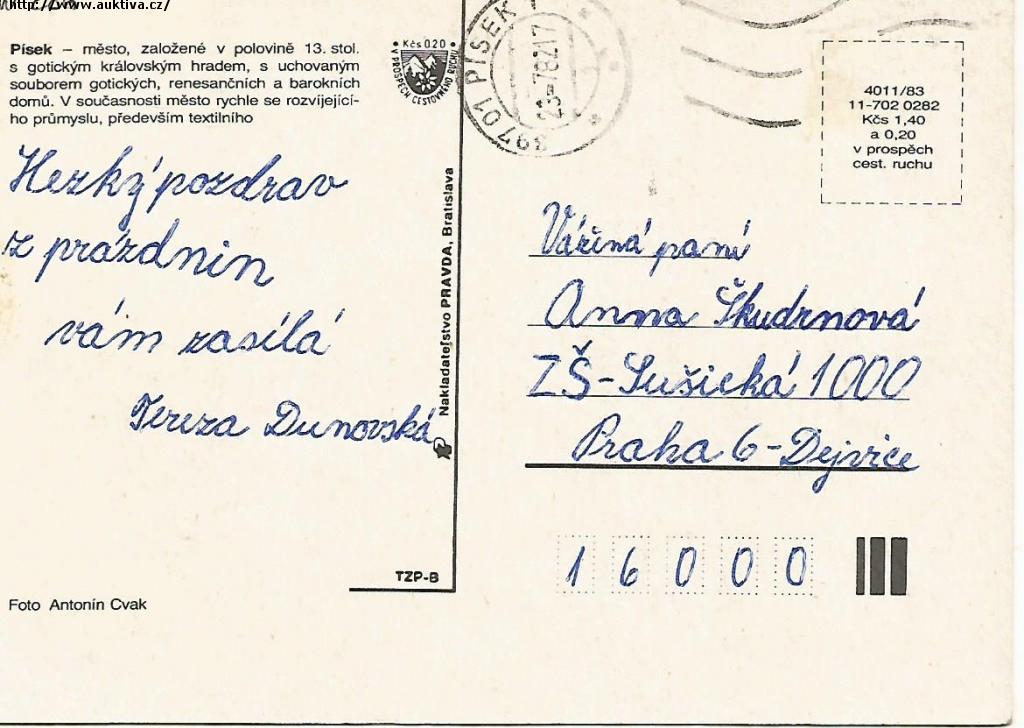 http://www.auktiva.cz/
Písek – město, založené v polovině 13. stol.
s gotickým královským hradem, s uchovaným
souborem gotických, renesančních a barokních
domů. V současnosti město rychle se rozvíjející-
ho průmyslu, především textilního
Kčs 0.20
V PROSPĚCH CESTOVNÉHO RUCHU
397 01 PÍSEK
Hezký pozdrav
z prázdnin
vám zasílá
Tereza Dunovská
Nakladateľstvo PRAVDA, Bratislava
TZP-B
Foto Antonín Cvak
4011/83
11-702 0282
Kčs 1,40
a 0,20
v prospěch
cest. ruchu
Vážená paní
Anna Škudrnová
ZŠ-Sušická 1000
Praha 6-Dejvice
16000